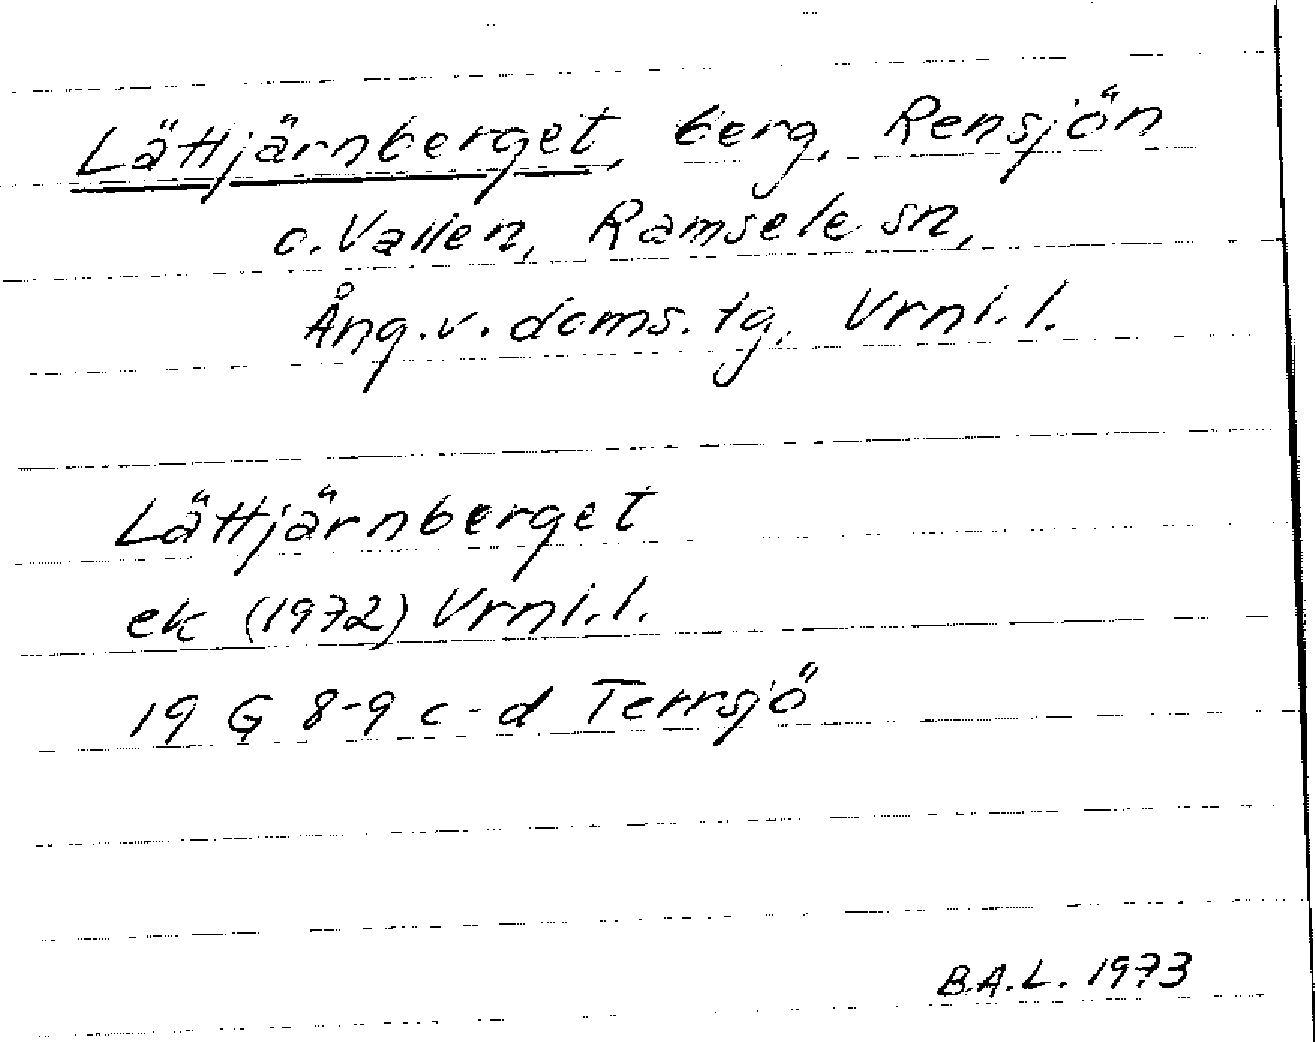 Lättjärnberget, berg, Rensjön
o. Vallen, Ramsele sn,
Ång. v. doms. tg, Vrnl. l.
Lättjärnberget
ek (1972) Vrnl. l.
19 G 8-9 c-d Terrsjö
B.A.L. 1973